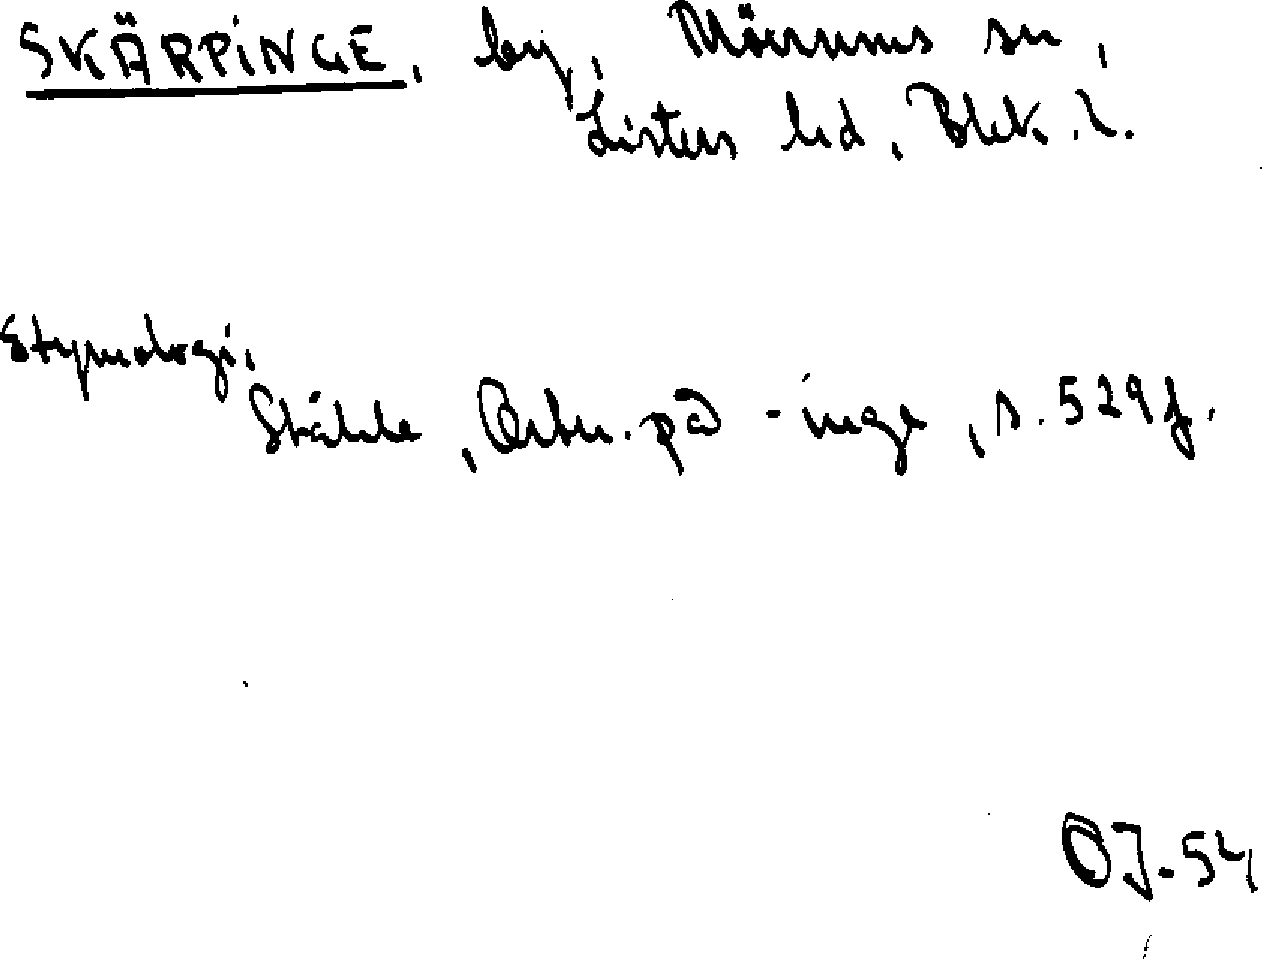 SKÄRPINGE, by, Mörrums sn,
Listers hd, Blek. l.
Etymologi.
Ståhle, Ortn. på -inge, s. 529 f.
OJ-54